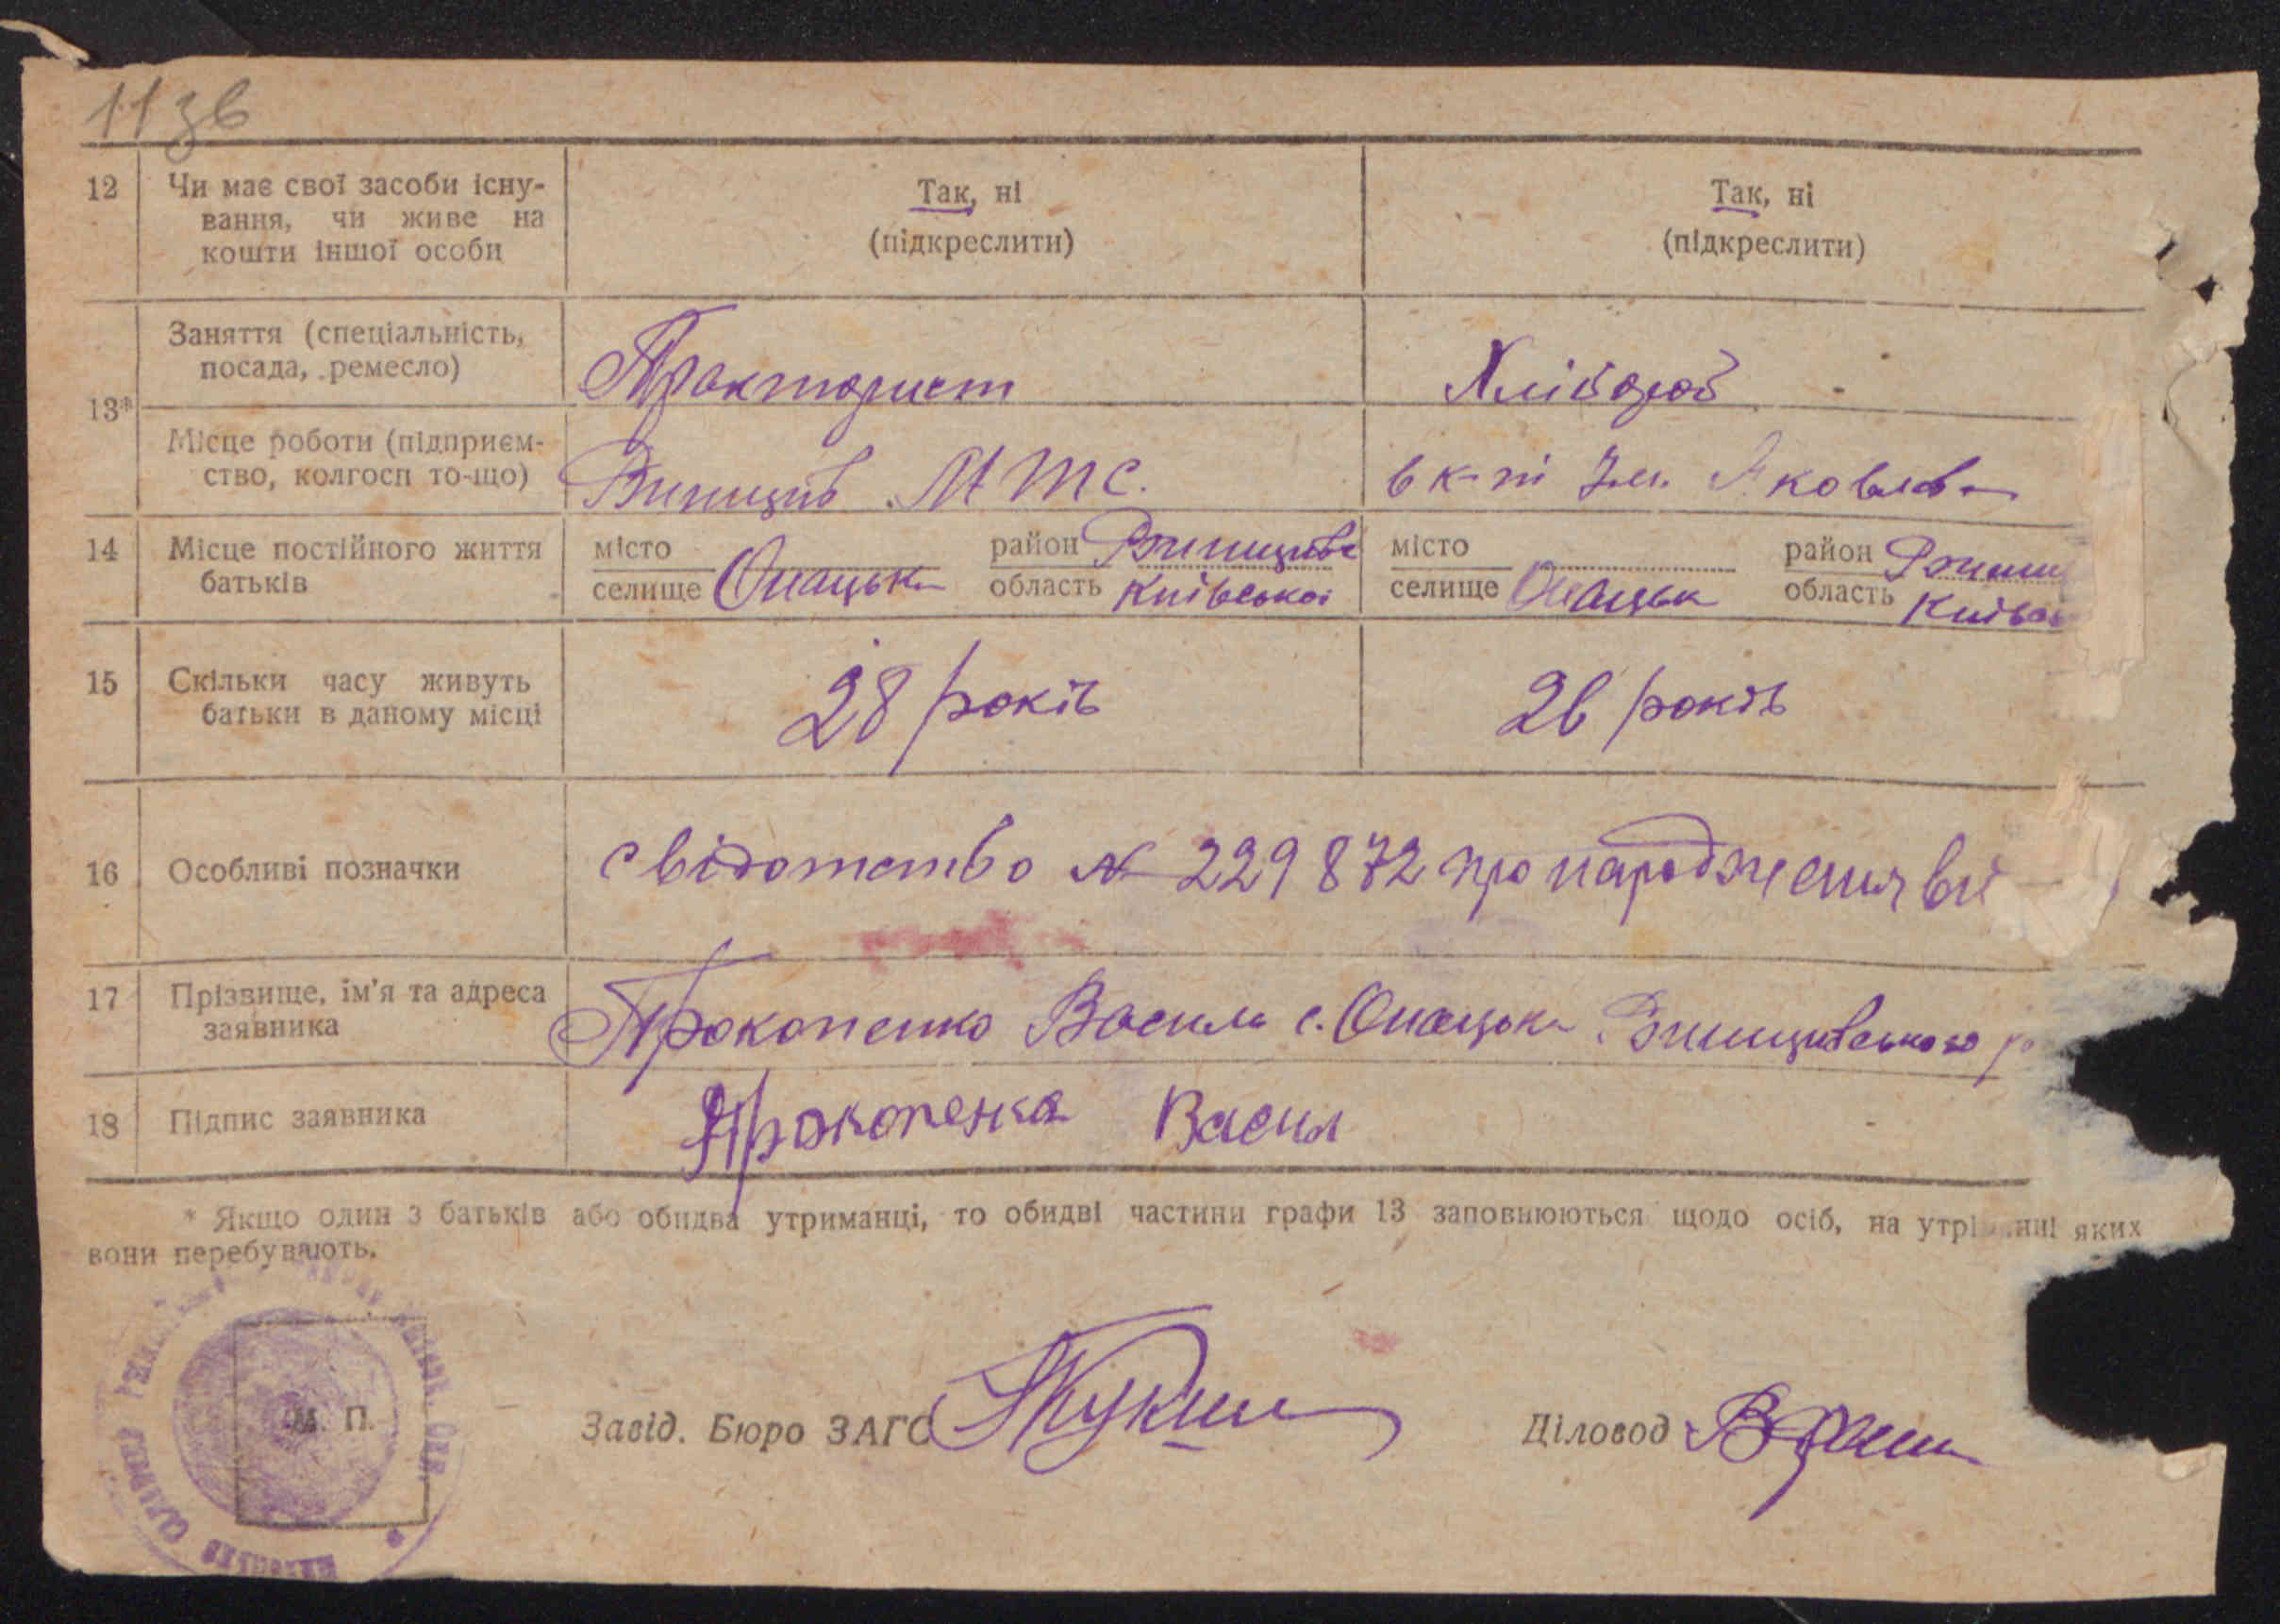 113в
12 Чи має свої засоби існу-
вання, чи живе на
кошти іншої особи
Так, ні
(підкреслити)
Так, ні
(підкреслити)
13*
Заняття (спеціальність,
посада, ремесло)
Тракторист
Хлібороб
Місце роботи (підприєм-
ство, колгосп то-що)
МТС.
в к-пі Ім. Яковлєва
14 Місце постійного життя
батьків
місто
селище Онацьки
район Ржищівс
область Київської
місто
селище Онацьк
район Ржищ
область Київс
15 Скільки часу живуть
батьки в даному місці
28 років
26 років
16 Особливі позначки
свідотство № 229872 про народження ви
17 Прізвище, ім'я та адреса
заявника
Прокопенко Василь с. Онацьки Ржищивського р
18 Підпис заявника
Прокопенка Васил
* Якщо один з батьків або обидва утриманці, то обидві частини графи 13 заповнюються щодо осіб, на утрі нні яких
вони перебувають.
М. П.
Завід. Бюро ЗАГС
Діловод